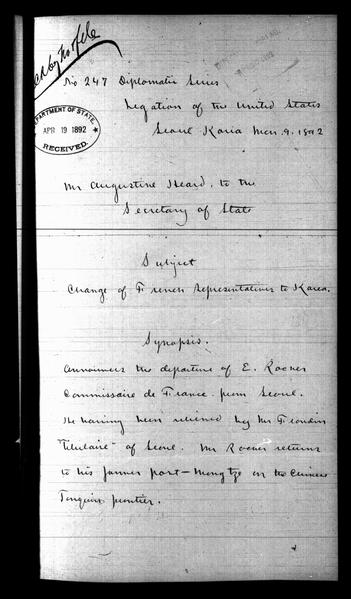 No 247 Diplomatic Series
Legation of the United States
Seoul Korea Mch. 9. 1892
DEPARTMENT OF STATE,
APR 19 1892
RECEIVED.
Mr Augustine Heard, to the
Secretary of State
Subject
Change of French Representatives to Korea.
Synopsis.
Announces the departure of E. Rocher
Commissaire de France from Seoul.
He having been relieved by Mr Frandin
"titulaire" of Seoul. Mr Rocher returns
to his former post—Mongtze on the Chinese
Tonquin frontier.